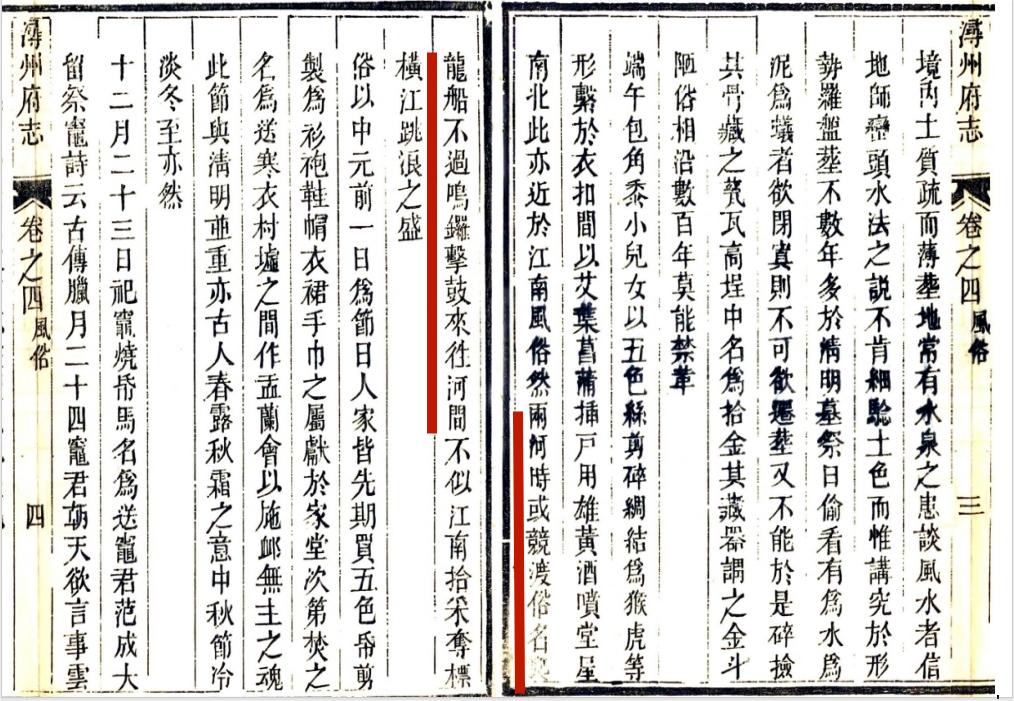 潯州府志 卷之四 風俗 三
境內土質疏而薄塟地常有水泉之患談風水者信
地師巒頭水法之說不肯細驗土色而惟講究於形
勢羅盤塟不數年多於清明墓祭日偷看有為水為
泥為蟻者欲閉窴則不可欲遷塟又不能於是碎撿
其骨藏之瓮瓦高埕中名為拾金其藏器謂之金斗
陋俗相沿數百年莫能禁革
端午包角黍小兒女以五色絲剪碎綢結為猴虎等
形繫於衣扣間以艾葉菖蒲插戶用雄黃酒噴堂屋
南北此亦近於江南風俗然兩河時或競渡俗名
龍船不過鳴鑼擊鼓來徃河間不似江南拾采奪標
橫江跳浪之盛
俗以中元前一日為節日人家皆先期買五色帋剪
製為衫袍鞋帽衣裙手巾之屬獻於家堂次第焚之
名為送寒衣村墟之間作盂蘭會以施䘏無主之魂
此節與清明並重亦古人春露秋霜之意中秋節冷
淡冬至亦然
十二月二十三日祀竈燒帋馬名為送竈君范成大
留祭竈詩云古傳臘月二十四竈君朝天欲言事雲
潯州府志 卷之四 風俗 四